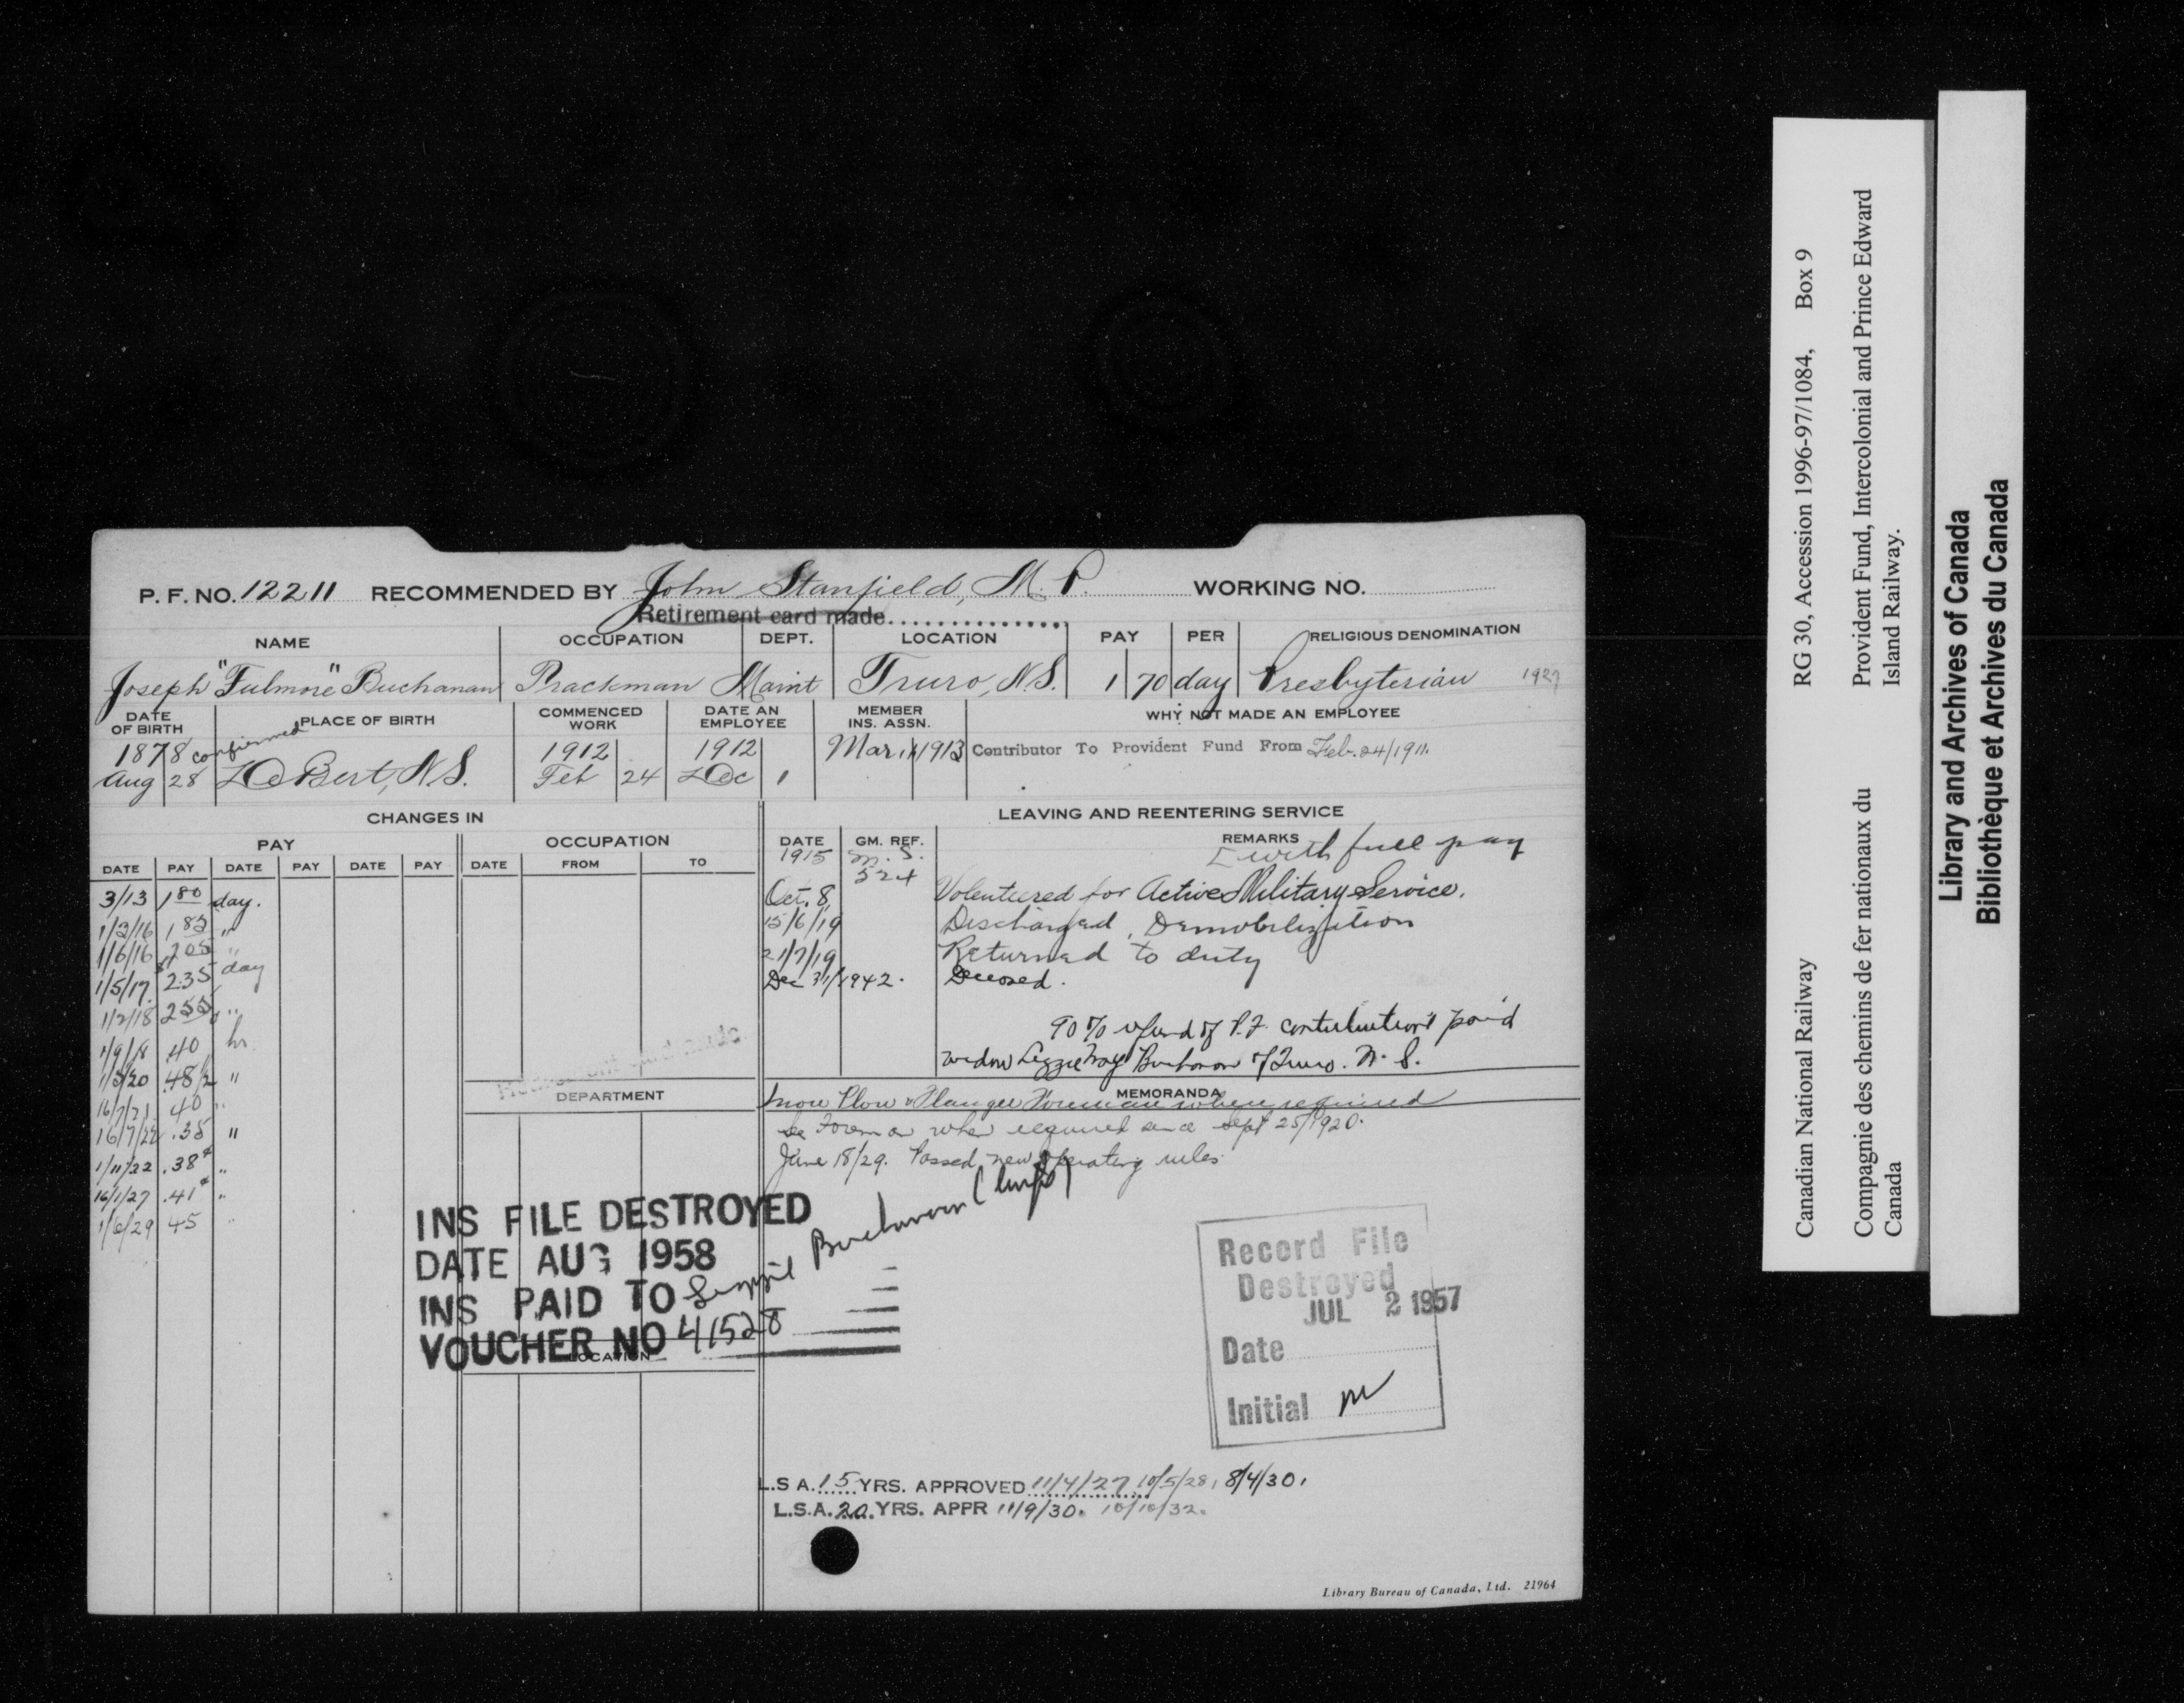 P. F. NO. 12211 RECOMMENDED BY John Stanfield, M.P. WORKING NO.
Retirement card made
NAME OCCUPATION DEPT. LOCATION PAY PER RELIGIOUS DENOMINATION
Joseph "Fulmore" Buchanan Trackman Maint Truro, N.S. 1 70 day Presbyterian 1927
DATE OF BIRTH PLACE OF BIRTH COMMENCED WORK DATE AN EMPLOYEE MEMBER INS. ASSN. WHY NOT MADE AN EMPLOYEE
1878 confirmed 1912 1912 Mar 1913 Contributor To Provident Fund From Feb. 24/1911.
Aug 28 DeBert, N.S. Feb 24 Dec 1
CHANGES IN LEAVING AND REENTERING SERVICE
PAY OCCUPATION DATE GM. REF. REMARKS
DATE PAY DATE PAY DATE PAY DATE FROM TO
1915 M.S. 524 with full pay
3/13 1 80 day.
Oct. 8 Volenteered for Active Military Service.
1/3/16 1 85 "
15/6/19 Discharged, Demobilization
1/6/16 205 "
21/7/19 Returned to duty
1/5/17. 2.35 day
Dec 31/1942. Deceased.
1/2/18 255 "
90% refund of P.F. contributions paid
1/9/18 .40 hr
widow Lizzie May Buchanan of Truro. N.S.
1/5/20 .48½ "
DEPARTMENT MEMORANDA
Snow Plow & Flanger Foreman where required
16/7/21. 40 "
Foreman when required since Sept 25/1920.
16/7/22 .35 "
June 18/29. Passed new operating rules
1/11/22 .38 "
16/1/27 .41 "
1/6/29 45 "
INS FILE DESTROYED
DATE AUG 1958
INS PAID TO Lizzie Buchanan (wife)
VOUCHER NO 41528
LOCATION
Record File
Destroyed
JUL 2 1957
Date
Initial
L.S A. 15 YRS. APPROVED 11/4/27 10/5/28, 8/4/30.
L.S.A. 20. YRS. APPR 11/9/30. 10/10/32.
Library Bureau of Canada, Ltd. 21964
Canadian National Railway RG 30, Accession 1996-97/1084, Box 9
Compagnie des chemins de fer nationaux du Canada
Provident Fund, Intercolonial and Prince Edward Island Railway.
Library and Archives of Canada
Bibliothèque et Archives du Canada